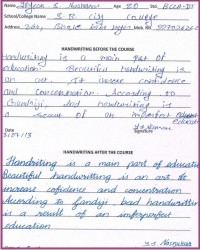 Name: S. Age: 20 Std.: BCA-III
School/College Name: S. B. City College
Address: Mob. No.
HANDWRITING BEFORE THE COURSE
Handwriting is a main part of
education. Beautiful handwriting is
an art. It increase confidence
and concentration. According to
Ghandiji, bad handwriting is
a result of an imperfect education
Date
Signature
HANDWRITING AFTER THE COURSE
Handwriting is a main part of education
Beautiful handwriting is an art. It
increase cofidence and concentration
According to Gandiji bad handwritten
is a result of an imferperfect
education